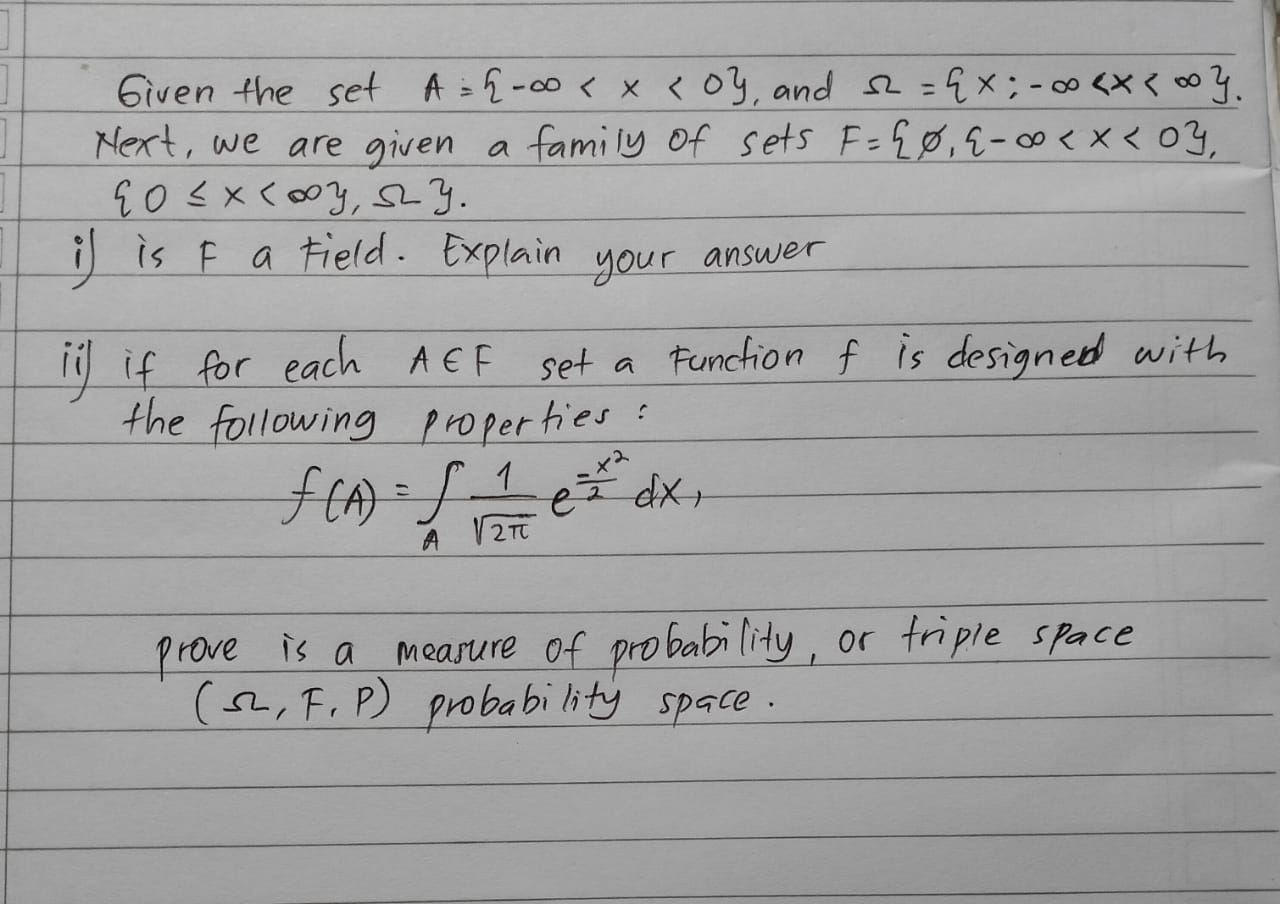 Given the set A = {-∞ < x < 0}, and Ω = {x; -∞ < x < ∞}.
Next, we are given a family of sets F = {Ø, {-∞ < x < 0},
{0 ≤ x < ∞}, Ω}.
i) is F a field. Explain your answer
ii) if for each A ∈ F set a Function f is designed with
the following properties :
f(A) = ∫_A 1/√2π e^(-x²/2) dx,
prove is a measure of probability, or triple space
(Ω, F, P) probability space.